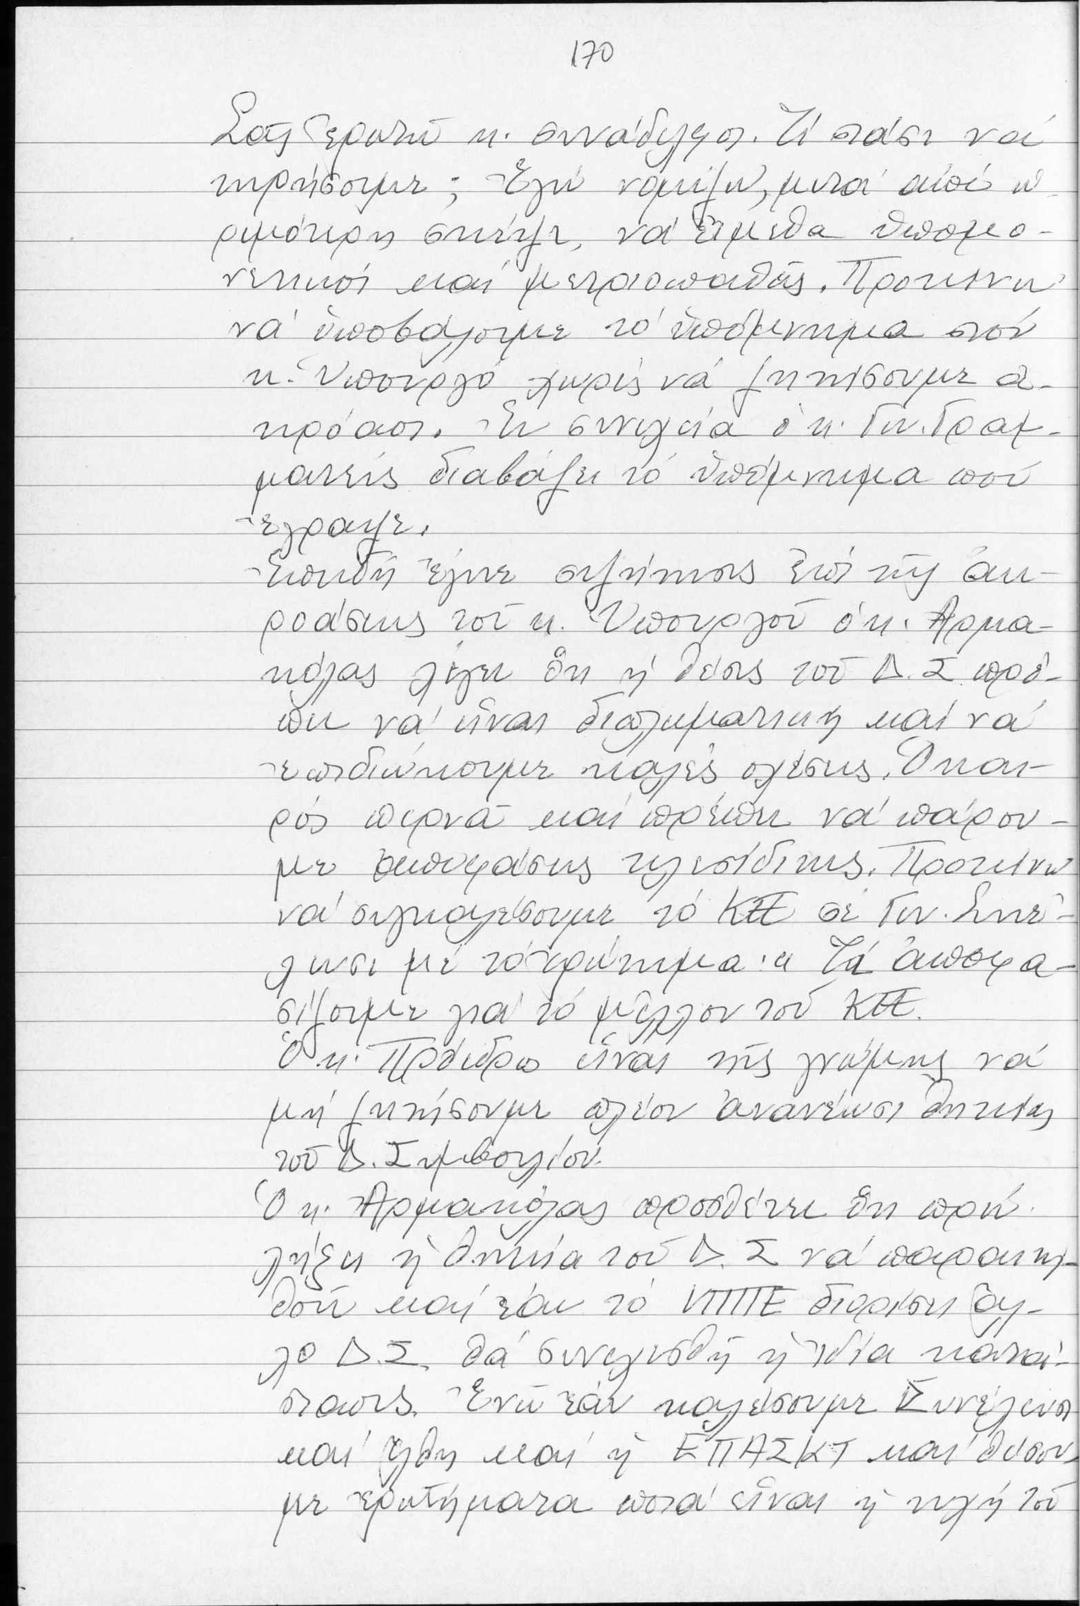 170
Σᾶς ἐρωτῶ κ. συνάδελφοι. Τί στάσι νά
τηρήσουμε; Ἐγώ νομίζω, μετά ἀπό ὡ-
ριμότερη σκέψι, νά εἴμεθα ὑπομο-
νετικοί καί μετριοπαθεῖς. Προτείνω
νά ὑποβάλουμε τό ὑπόμνημα στόν
κ. Ὑπουργό χωρίς νά ζητήσουμε ἀ-
κρόασι. Ἐν συνεχεία ὁ κ. Γεν. Γραμ-
ματεύς διαβάζει τό ὑπόμνημα πού
ἔγραψε.
Ἐπειδή ἔγινε συζήτησις ἐπί τῆς ἀκ-
ροάσεως τοῦ κ. Ὑπουργοῦ ὁ κ. Ἀρμα-
κόλας λέγει ὅτι ἡ θέσις τοῦ Δ.Σ πρέ-
πει νά εἶναι διπλωματική καί νά
ἐπιδιώκουμε καλές σχέσεις. Ὁ και-
ρός περνᾶ καί πρέπει νά πάρου-
με ἀποφάσεις τελεσίδικες. Προτείνω
νά συγκαλέσουμε τό ΚΕΕ σέ Γεν. Συνέ-
λευσι μέ τό ἐρώτημα· τί ἀποφα-
σίζουμε γιά τό μέλλον τοῦ ΚΕΕ.
Ὁ κ. Πρόεδρος εἶναι τῆς γνώμης νά
μή ζητήσουμε πλέον ἀνανέωσι θητείας
τοῦ Δ. Συμβουλίου.
Ὁ κ. Ἀρμακόλας προσθέτει ὅτι πρίν
λήξει ἡ θητεία τοῦ Δ.Σ νά παραιτη-
θοῦν καί ἐάν τό ΥΠΠΕ διορίσει ἄλ-
λο Δ.Σ. θά συνεχισθῆ ἡ ἰδία κατά-
στασις. Ἐνῶ ἐάν καλέσουμε Συνέλευσι
καί ἔλθη καί ἡ ΕΠΑΣΚΤ καί θέσου-
με ἐρωτήματα ποιά εἶναι ἡ τύχη τοῦ